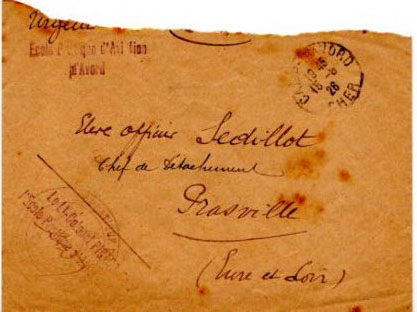 Urgent
Ecole Pratique d'Aviation
d'Avord
AVORD
26
CHER
Eleve officier Sedillot
Chef de Détachement
Prasville
(Eure et Loir)